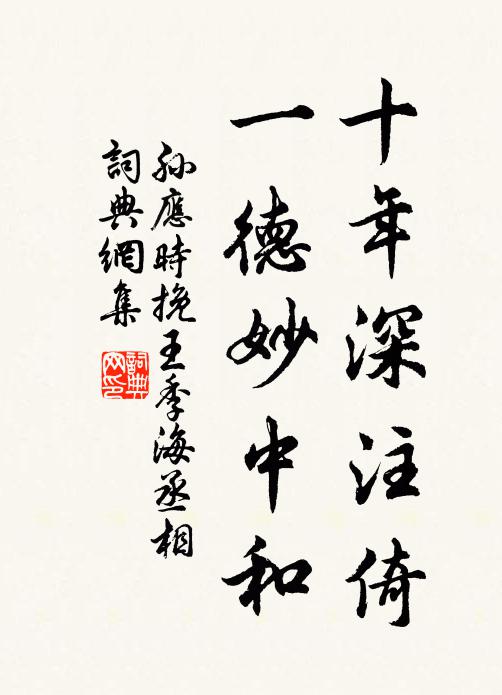 十年深注倚
一德妙中和
孫應時挽王季海丞相
詞典網集
詞典网印